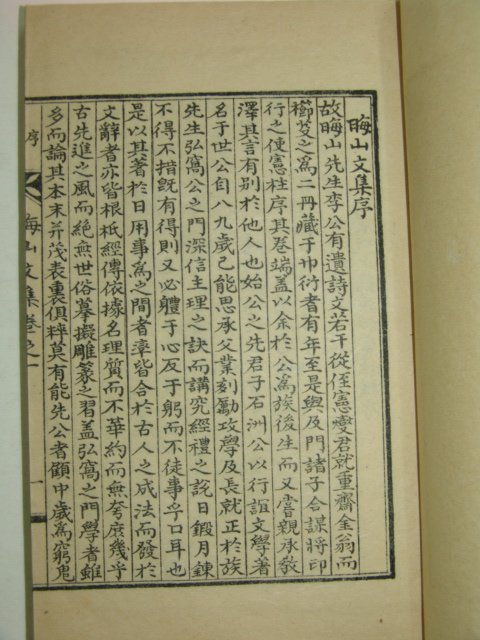 晦山文集序
故晦山先生李公有遺詩文若干從侄憲燮君就重齋金翁而
櫛芟之爲二冊藏于巾衍者有年至是與及門諸子合謀將印
行之使憲柱序其卷端盖以余於公爲族後生而又嘗親承敎
澤其言有别於他人也始公之先君子石洲公以行誼文學著
名于世公自八九歲已能思承父業刻勵攻學及長就正於族
先生弘窩公之門深信主理之訣而講究經禮之說日鍛月鍊
不得不措旣有得則又必軆于心反于躬而不徒事乎口耳也
是以其著於日用事爲之間者率皆合於古人之成法而發於
文辭者亦皆根柢經傳依據名理質而不華約而無夸庶幾乎
古先進之風而絶無世俗摹擬雕篆之習盖弘窩之門學者雖
多而論其本末并茂表裏俱粹莫有能先公者顧中歲爲窮鬼
序
晦山文集卷之一
一